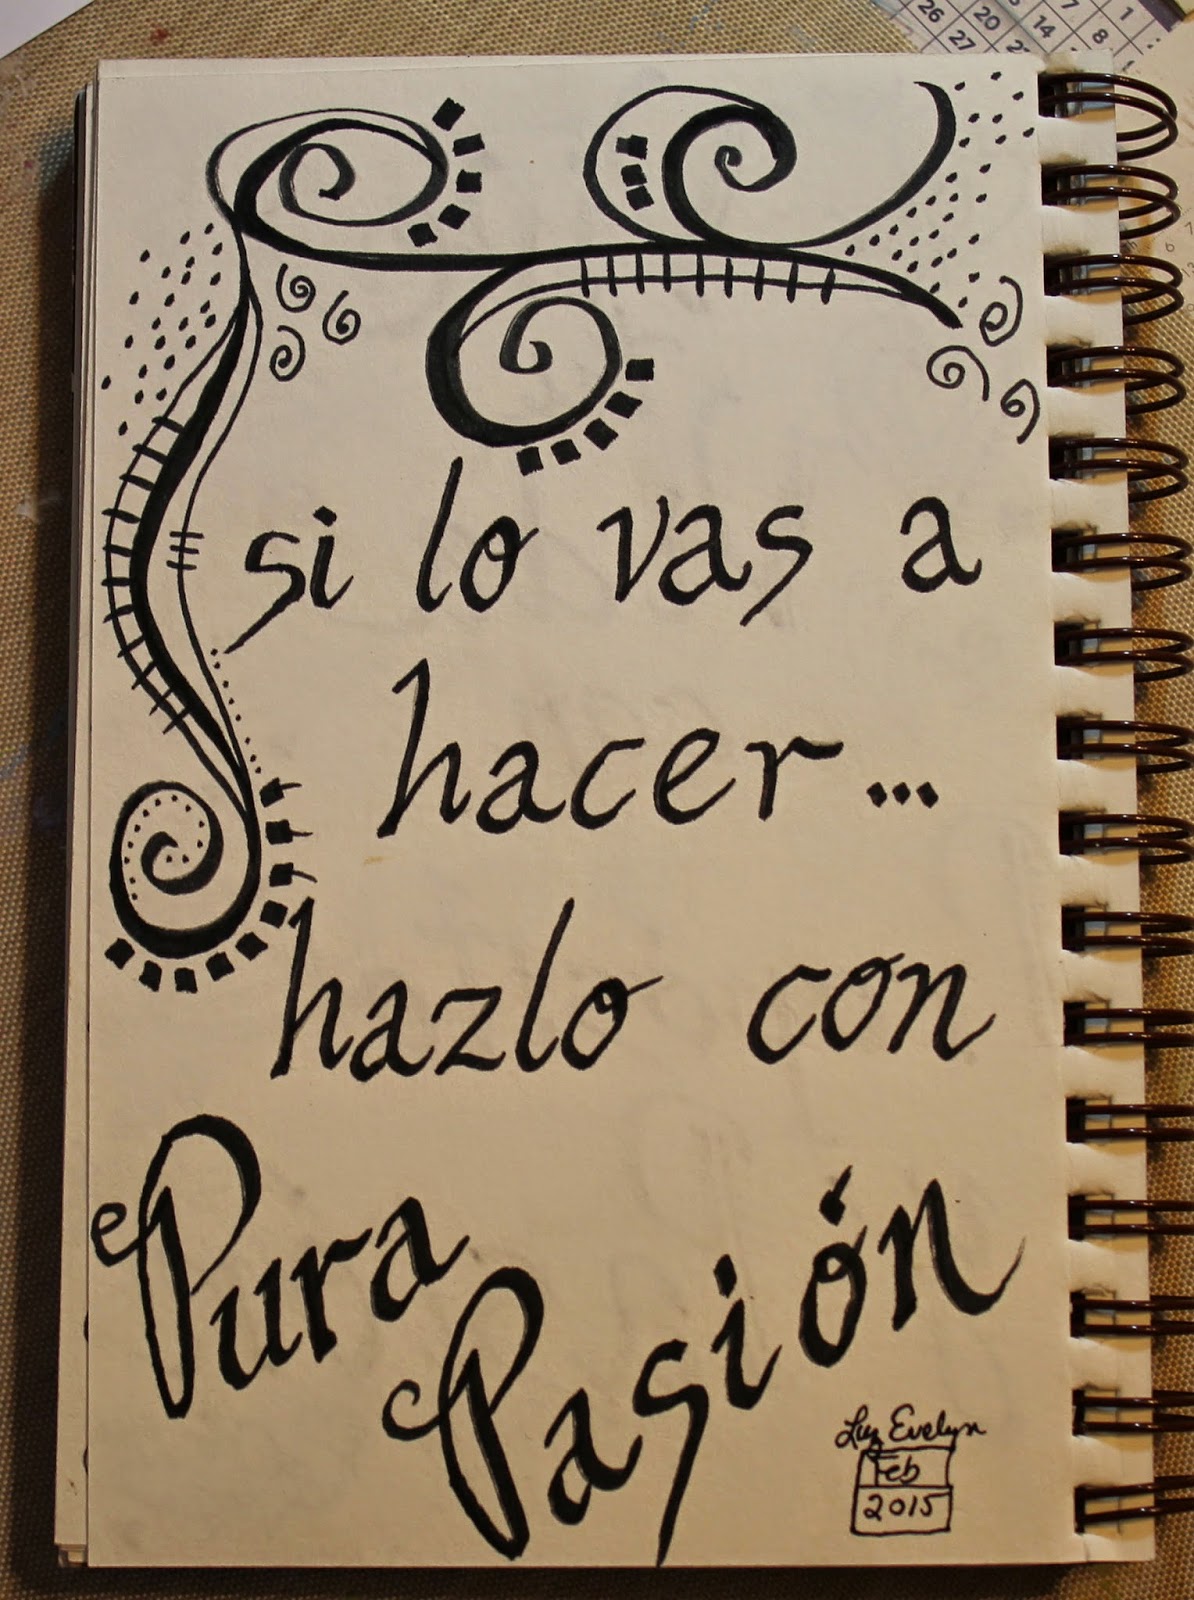 si lo vas a
hacer...
hazlo con
Pura
Pasión
Luz Evelyn
Feb
2015
26 20 14 7 1
27 8